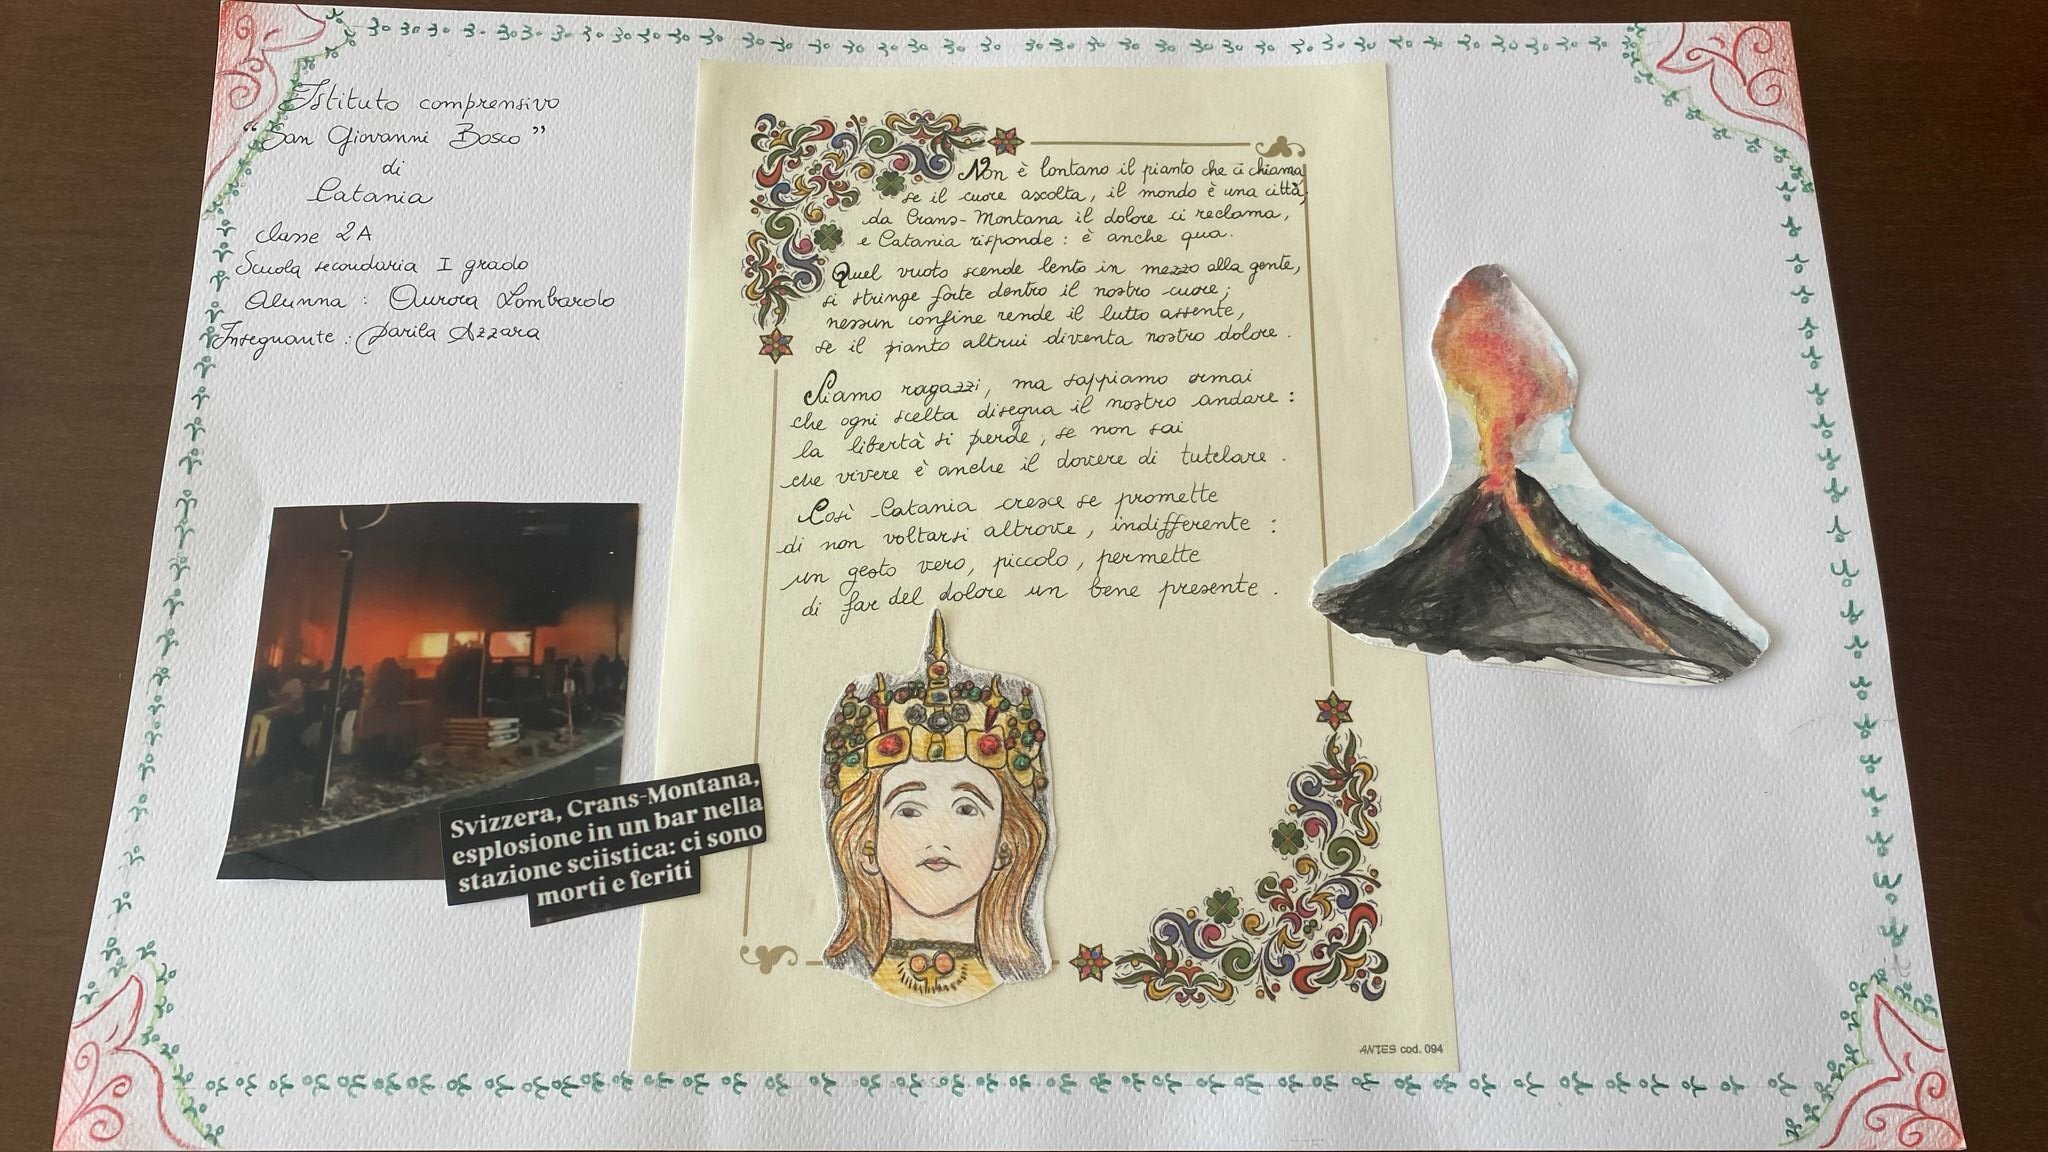 Istituto comprensivo
"San Giovanni Bosco"
di
Catania
classe 2A
Scuola secondaria I grado
Alunna: Aurora Lombardo
Insegnante: Azzara
Non è lontano il pianto che ci chiama,
se il cuore ascolta, il mondo è una città;
da Crans-Montana il dolore ci reclama,
e Catania risponde: è anche qua.
Quel vuoto scende lento in mezzo alla gente,
si stringe forte dentro il nostro cuore;
nessun confine rende il lutto assente,
se il pianto altrui diventa nostro dolore.
Siamo ragazzi, ma sappiamo ormai
che ogni scelta disegna il nostro andare:
la libertà si perde, se non sai
che vivere è anche il dovere di tutelare.
Così Catania cresce se promette
di non voltarsi altrove, indifferente:
un gesto vero, piccolo, permette
di far del dolore un bene presente.
Svizzera, Crans-Montana,
esplosione in un bar nella
stazione sciistica: ci sono
morti e feriti
ANTES cod. 094